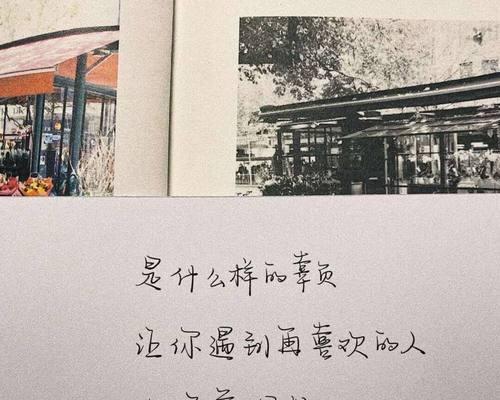 是什么样的辜负
让你遇到再喜欢的人